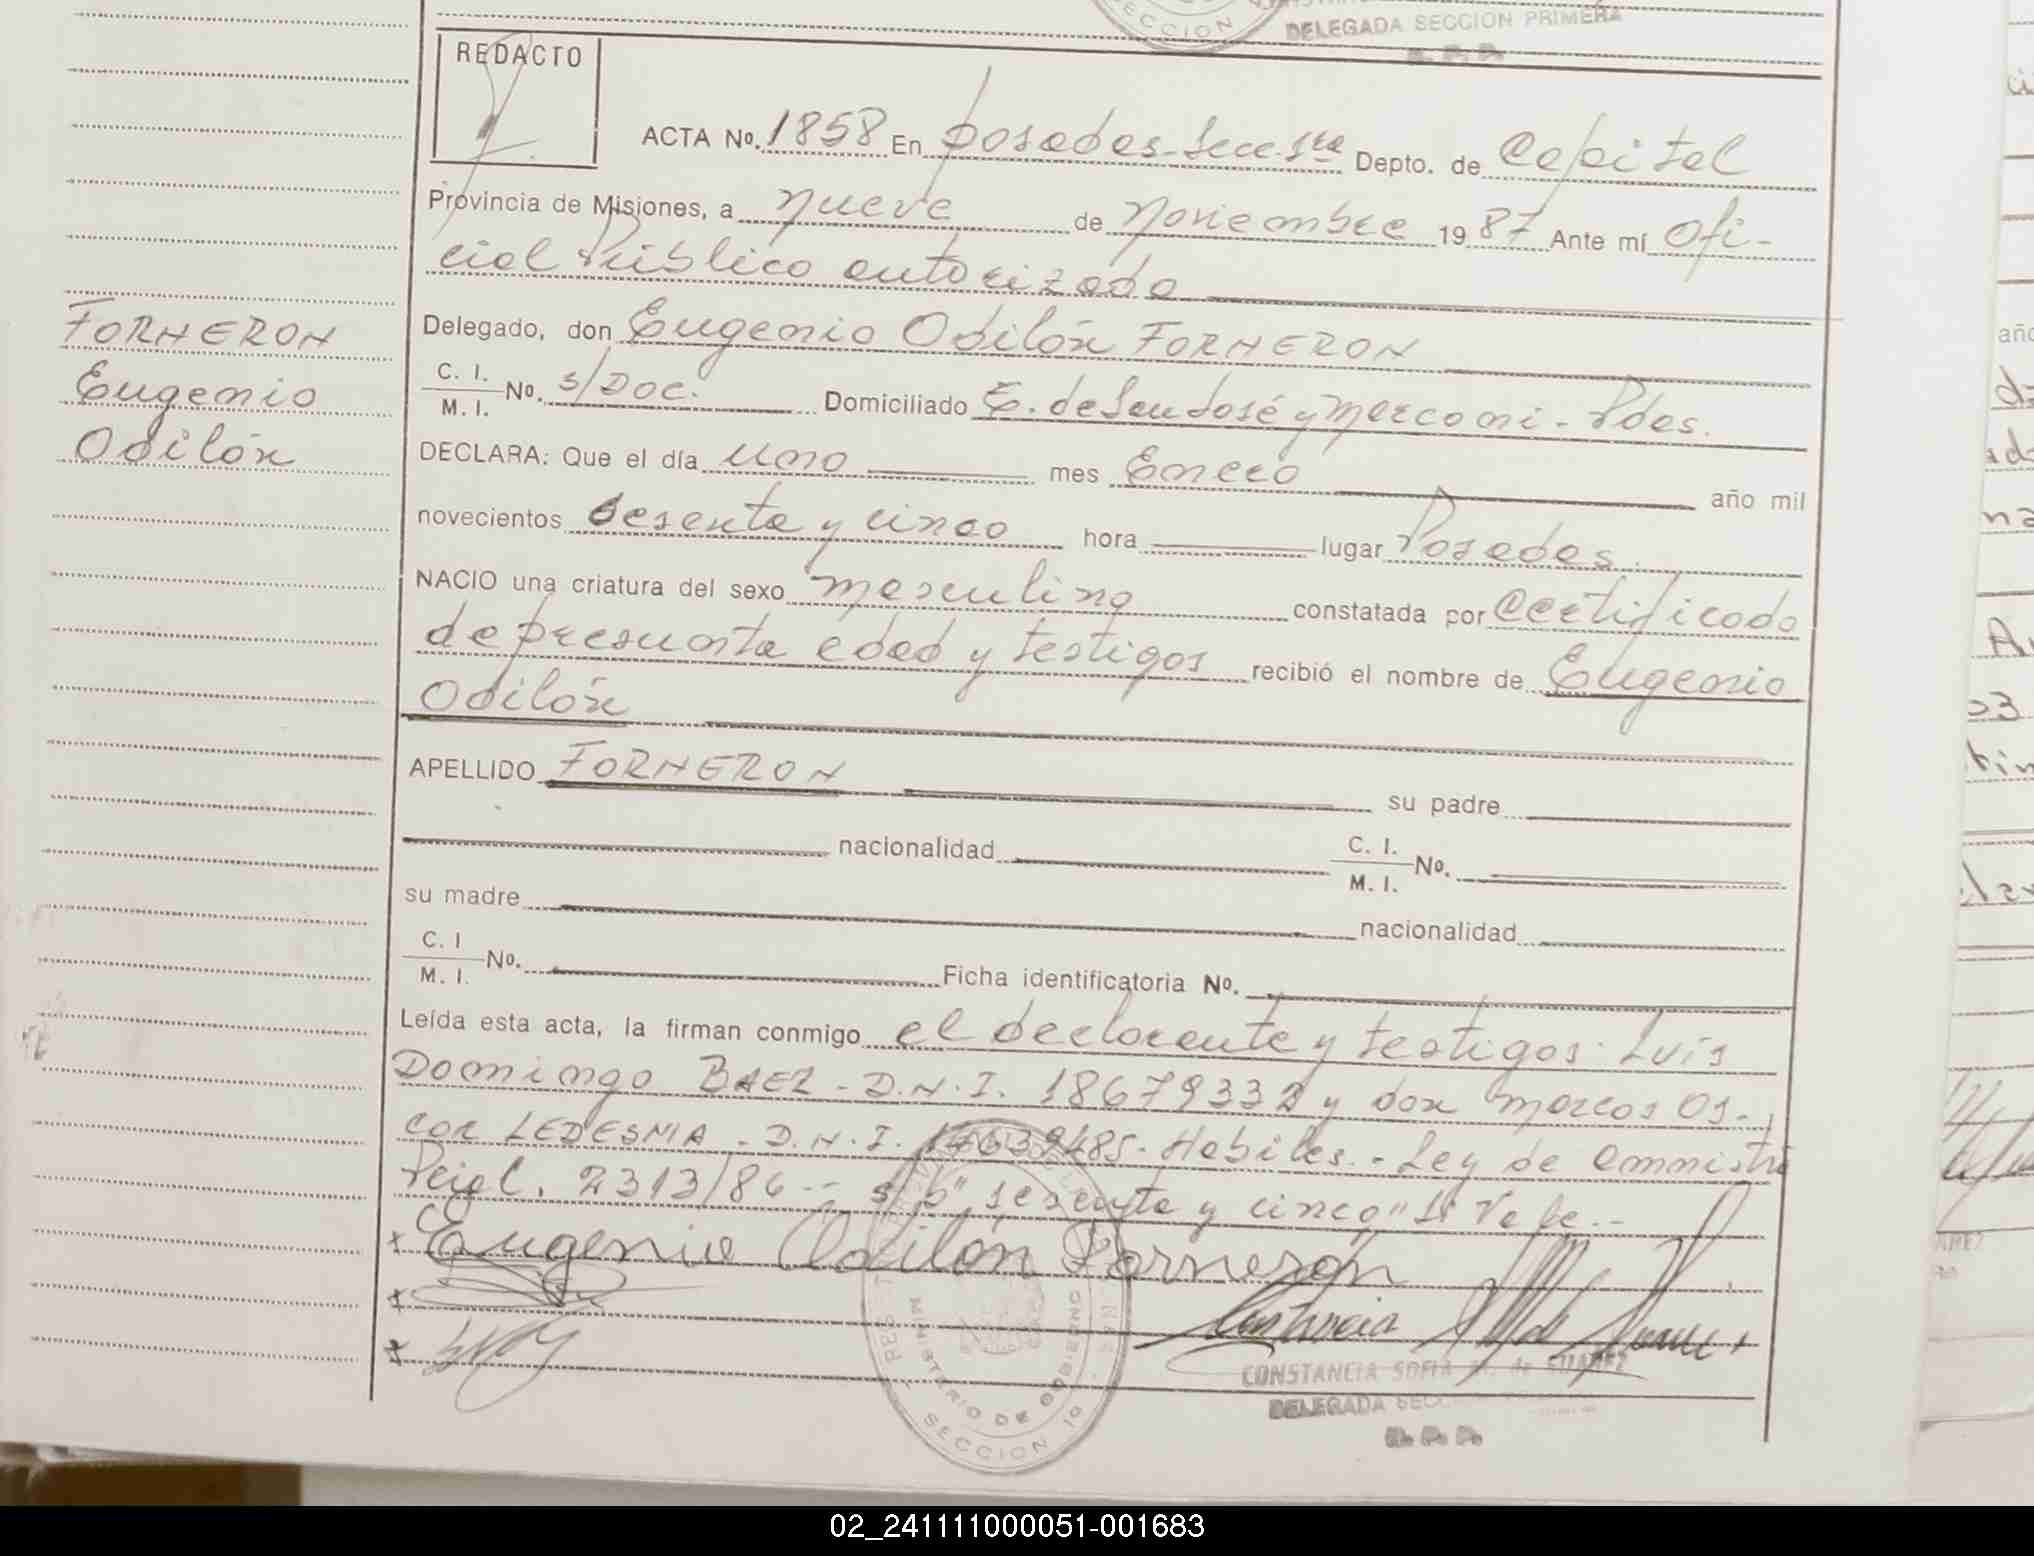 SECCION
DELEGADA SECCION PRIMERA
R. P. P.
REDACTO
ACTA Nº. 1858 En Posadas-Secc. 1ra Depto. de Capital
Provincia de Misiones, a nueve de Noviembre 1987 Ante mí Ofi-
cial Público autorizado
Delegado, don Eugenio Odilón FORNERON
C. I.
M. I. Nº. s/Doc. Domiciliado E. de San José y Marconi - Pdas.
DECLARA: Que el día uno mes Enero año mil
novecientos sesenta y cinco hora lugar Posadas
NACIO una criatura del sexo masculino constatada por Certificado
de presunta edad y testigos recibió el nombre de Eugenio
Odilón
APELLIDO FORNERON su padre
nacionalidad C. I.
M. I. Nº.
su madre nacionalidad
C. I
M. I. Nº. Ficha identificatoria Nº.
Leída esta acta, la firman conmigo el declarante y testigos: Luís
Domingo BAEZ - D.N.I. 18679332 y don Marcos Os-
car LEDESMA - D.N.I. 17639485 - Habiles. - Ley de Amnistía
Pcial. 2313/86 -- s/b "sesenta y cinco" Si Vale. -
x Eugenio Odilón Fornerón
x
x
FORNERON
Eugenio
Odilón
MINISTERIO DE GOBIERNO
SECCION 1ª
CONSTANCIA SOFIA de SUAREZ
DELEGADA SECC
R. P. P.
02_241111000051-001683